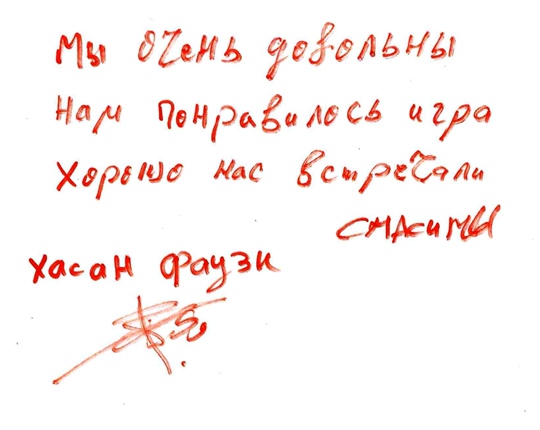 Мы очень довольны
Нам понравилось игра
Хорошо нас встречали
Хасан Фаузи